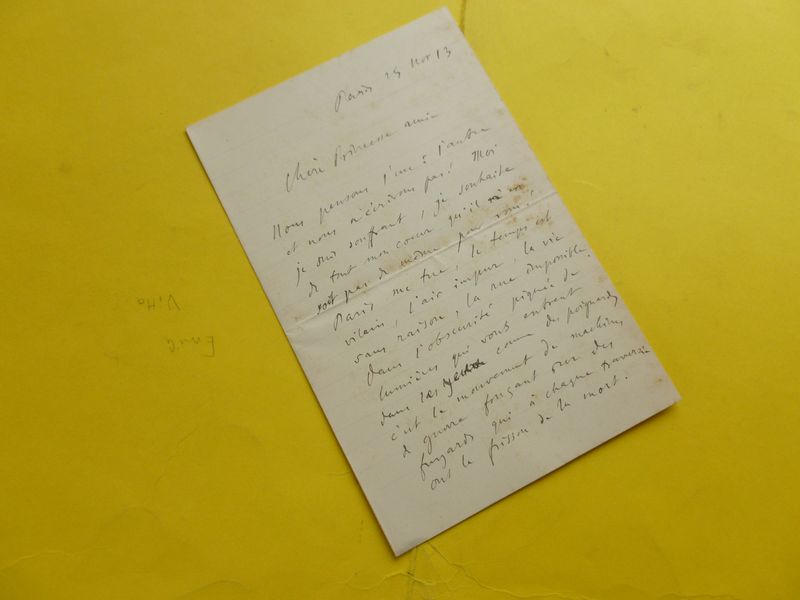 Paris 25 Nov 13
Chère Princesse amie
Nous pensons l'une à l'autre
et nous n'écrivons pas! Moi
je suis souffrant, je souhaite
de tout mon coeur qu'il n'en
soit pas de même pour vous!
Paris me tue, le temps est
vilain, l'air impur, la vie
sans raison, la rue impossible.
dans l'obscurité piquée de
lumières qui vous entrent
dans les yeux comme des poignards
c'est le mouvement de machines
de guerre fonçant sur des
fuyards qui à chaque traversée
ont le frisson de la mort.